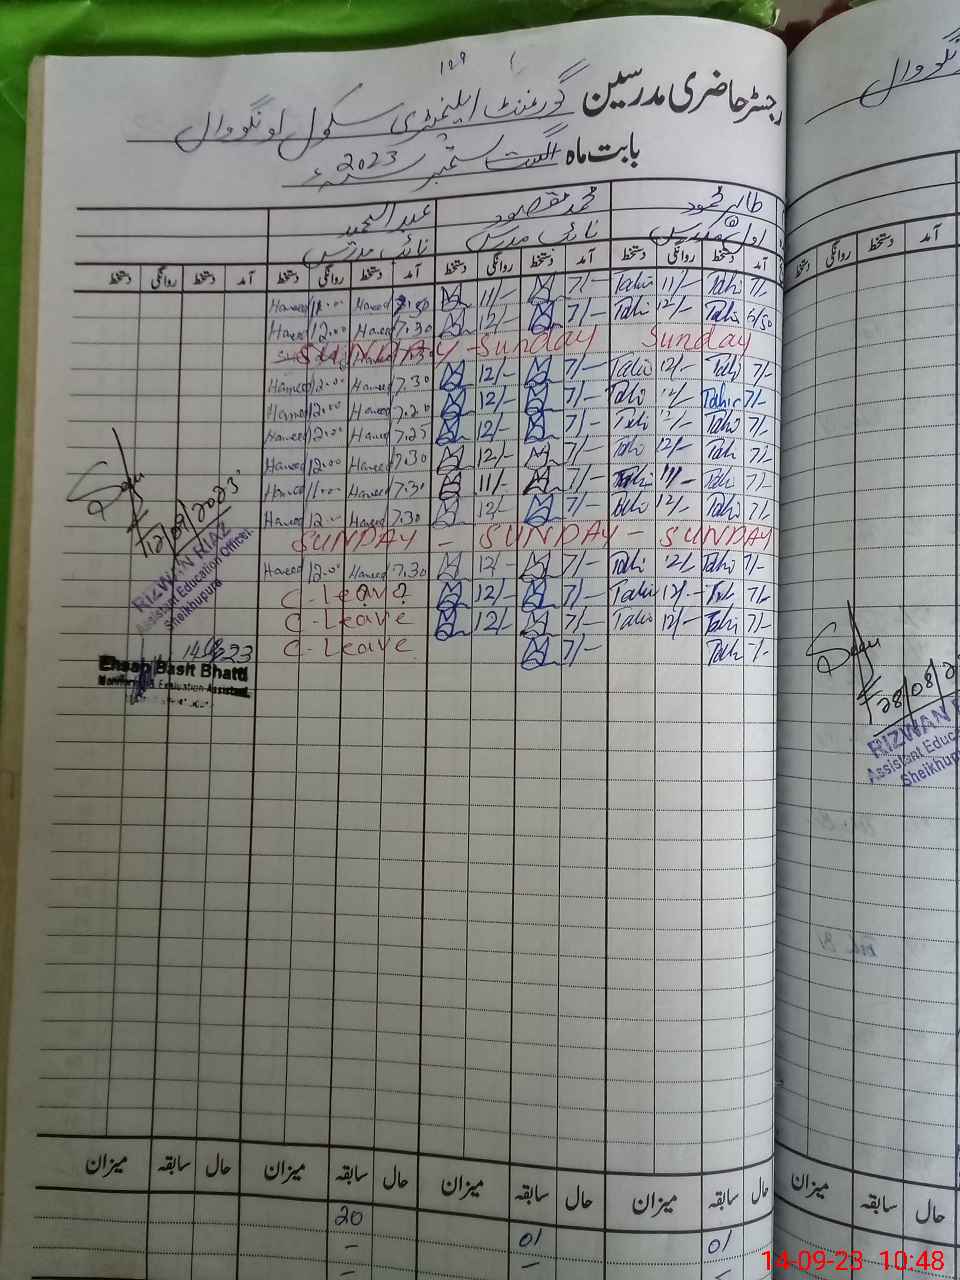 129
رجسٹر حاضری مدرسین گورنمنٹ ایلیمنٹری سکول لونگووال
بابت ماہ اگست ستمبر 2023
طاہر محمود محمد مقصود عبدالحمید
اول مدرس نائب مدرس نائب مدرس
آمد دستخط روانگی دستخط آمد دستخط روانگی دستخط آمد دستخط روانگی دستخط آمد دستخط روانگی دستخط
Hameed 11.00 Hameed 7.30 11/- 7/- Tahir 11/- Tahir 7/-
Hameed 12.00 Hameed 7.30 12/- 7/- Tahir 12/- Tahir 6/50
SUNDAY - Sunday Sunday
Hameed 12.00 Hameed 7.30 12/- 7/- Tahir 12/- Tahir 7/-
Hameed 12.00 Hameed 7.20 12/- 7/- Tahir 12/- Tahir 7/-
Hameed 12.00 Hameed 7.25 12/- 7/- Tahir 12/- Tahir 7/-
Hameed 12.00 Hameed 7.30 12/- 7/- Tahir 12/- Tahir 7/-
Hameed 11.00 Hameed 7.30 11/- 7/- Tahir 11/- Tahir 7/-
Hameed 12.00 Hameed 7.30 12/- 7/- Tahir 12/- Tahir 7/-
SUNDAY - SUNDAY - SUNDAY
Hameed 12.00 Hameed 7.30 12/- 7/- Tahir 12/- Tahir 7/-
C-Leave 12/- 7/- Tahir 12/- Tahir 7/-
C-Leave 12/- 7/- Tahir 12/- Tahir 7/-
C-Leave 7/- Tahir 7/-
12/09/2023
RIZWAN RIAZ
Assistant Education Officer
Sheikhupura
14/09/23
Ehsan Basit Bhatti
Monitoring & Evaluation Assistant
میزان سابقہ حال میزان سابقہ حال میزان سابقہ حال میزان سابقہ حال
20 01 01
آمد دستخط روانگی دستخط
28/08/2
RIZWAN
Assistant Educ
Sheikhup
میزان سابقہ حال
14-09-23 10:48